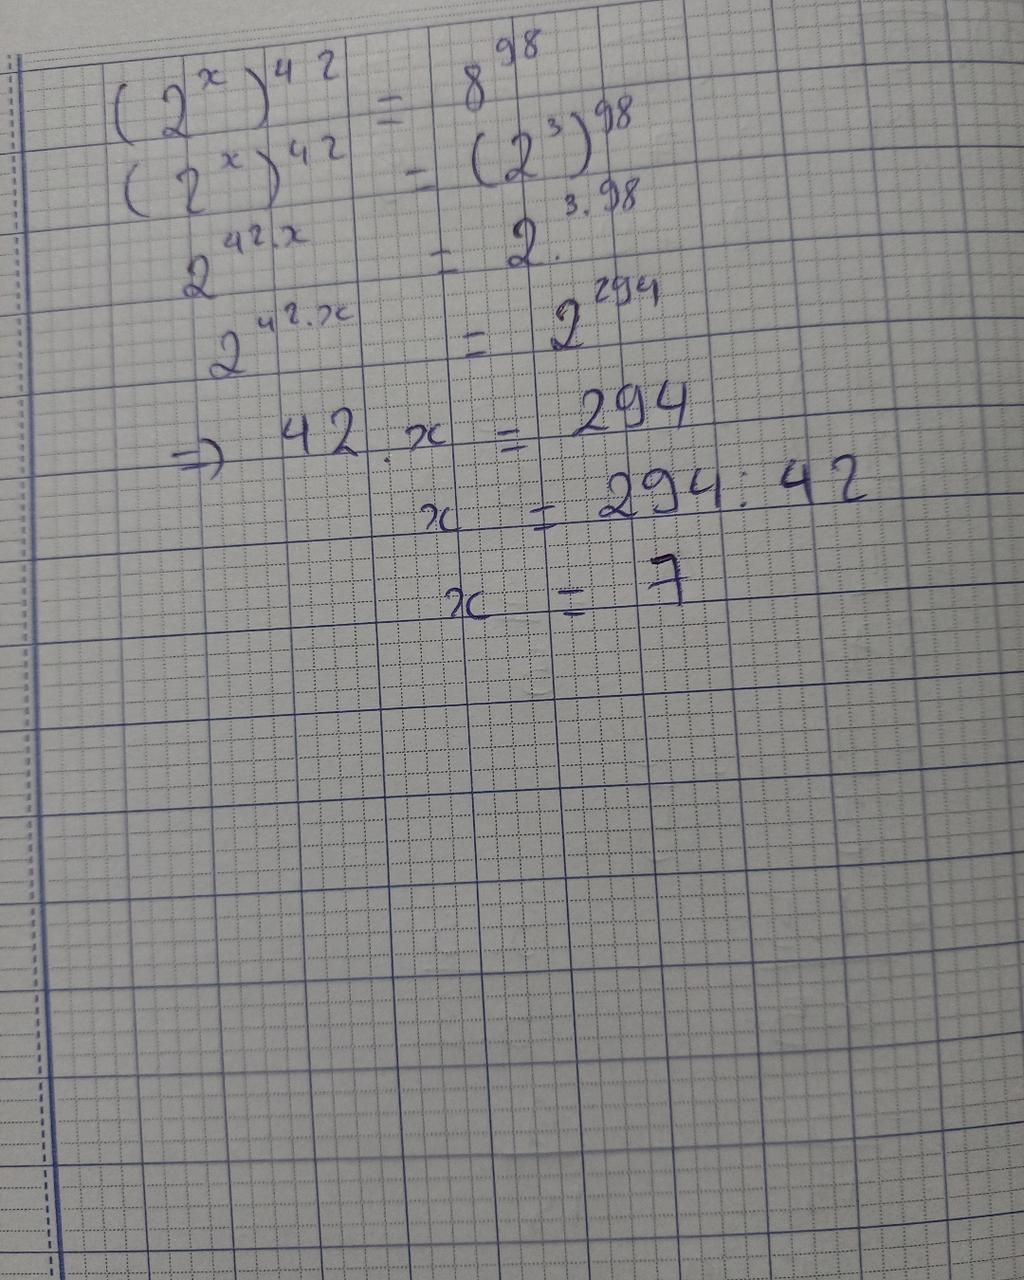 (2^x)^42 = 8^98
(2^x)^42 = (2^3)^98
2^42.x = 2.^3.98
2^42.x = 2^294
⇒ 42.x = 294
x = 294:42
x = 7